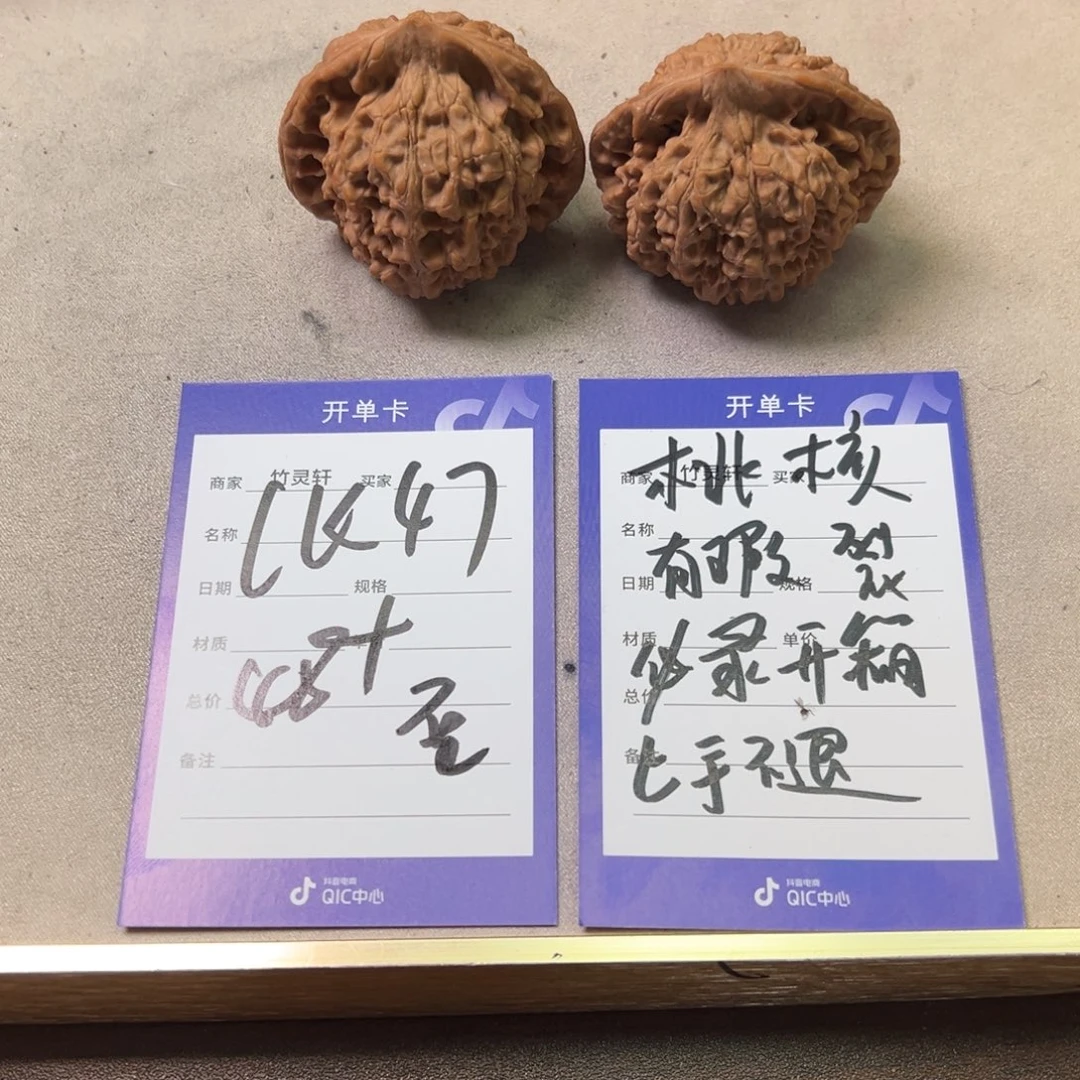 开单卡
商家 竹灵轩 买家
名称
日期 规格
材质
总价
备注
抖音电商
QIC中心
开单卡
商家 竹灵轩 买家
名称
日期 规格
材质 单价
总价
备注
桃核
有瑕 裂
必录开箱
上手不退
抖音电商
QIC中心